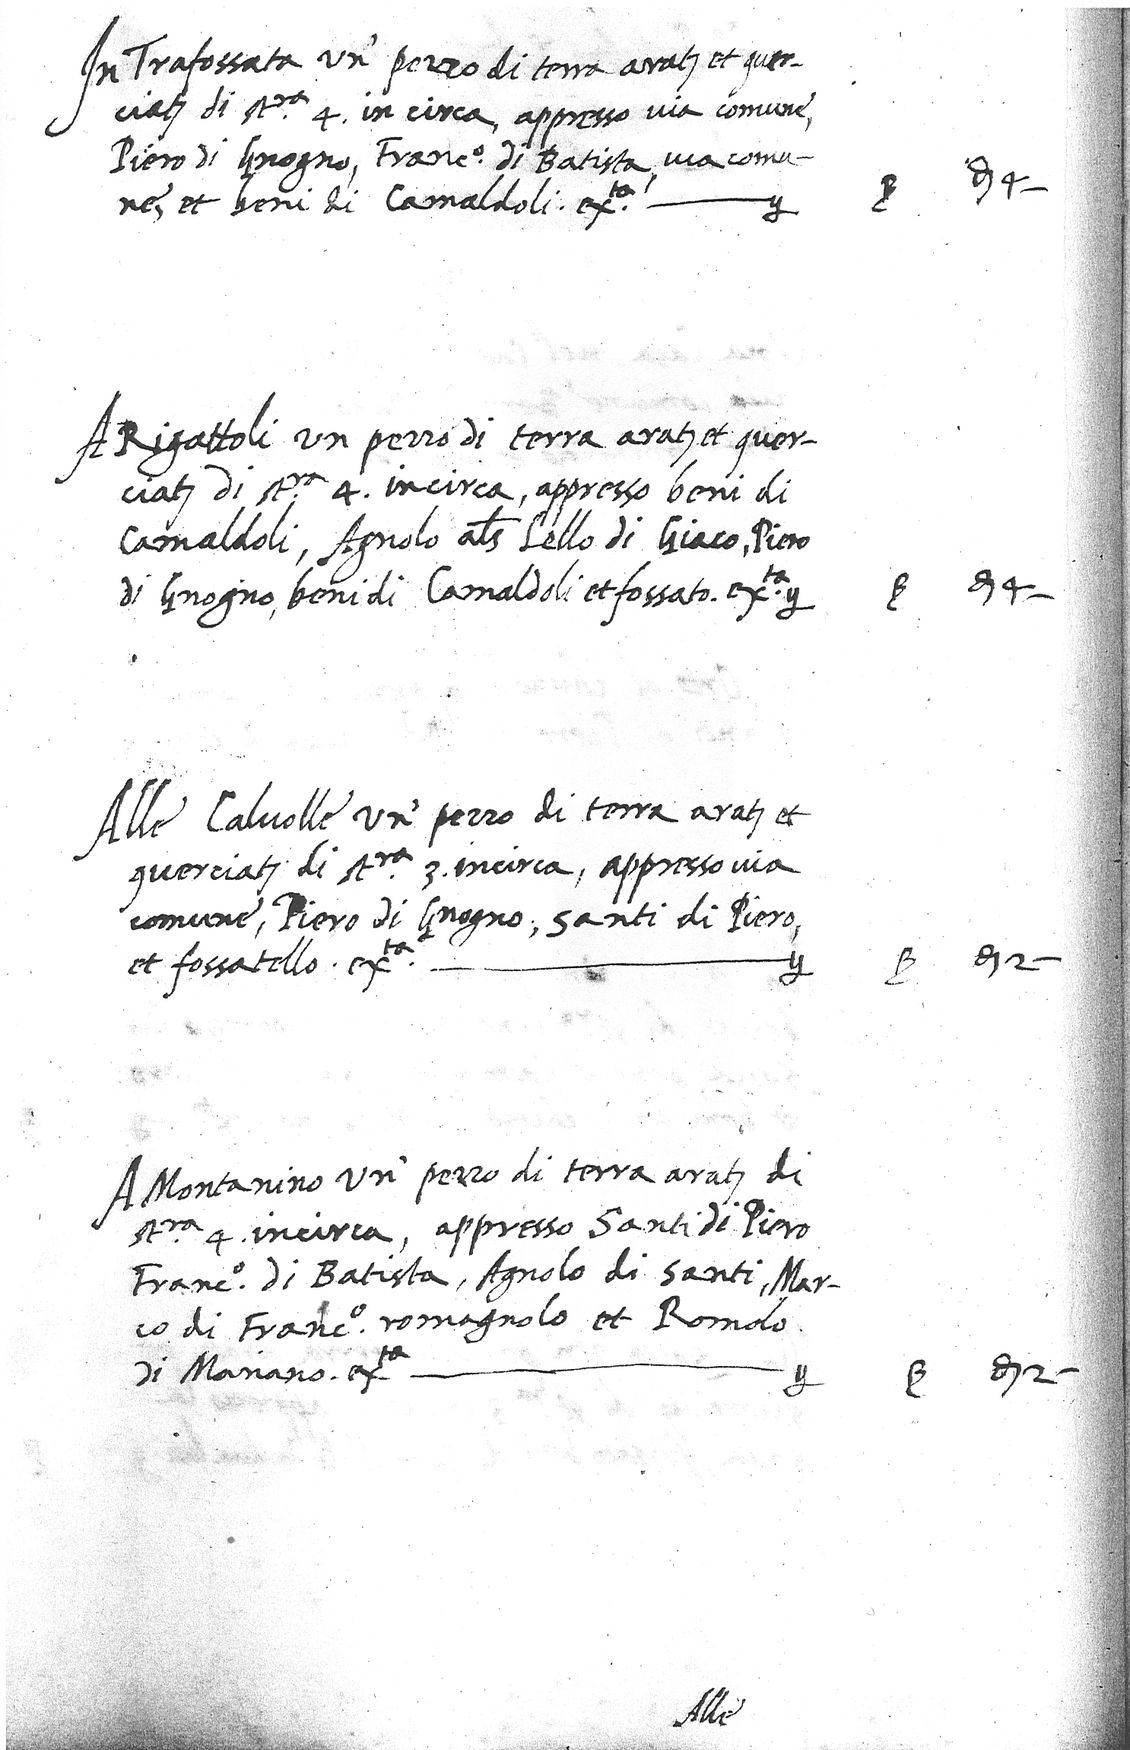 In Trafossata un' pezzo di terra arat. et quer-
ciat. di st.ra 4. in circa, appresso via comune,
Piero di Gnogno, Franc.o di Batista, via comu-
ne, et beni di Camaldoli. ex.ta 4-
A Rigattoli un pezzo di terra arat. et quer-
ciat. di st.ra 4. incirca, appresso beni di
Camaldoli, Agnolo als Lello di Giaco, Piero
di Gnogno, beni di Camaldoli et fossato. ex.ta 4-
Alle Calvolle un' pezzo di terra arat. et
querciat. di st.ra 3. incirca, appresso via
comune, Piero di Gnogno, Santi di Piero,
et fossatello. ex.ta 2-
A Montanino un' pezzo di terra arat. di
st.ra 4. incirca, appresso Santi di Piero
Franc.o di Batista, Agnolo di Santi, Mar-
co di Franc.o romagnolo et Romolo
di Mariano. ex.ta 2-
Alle